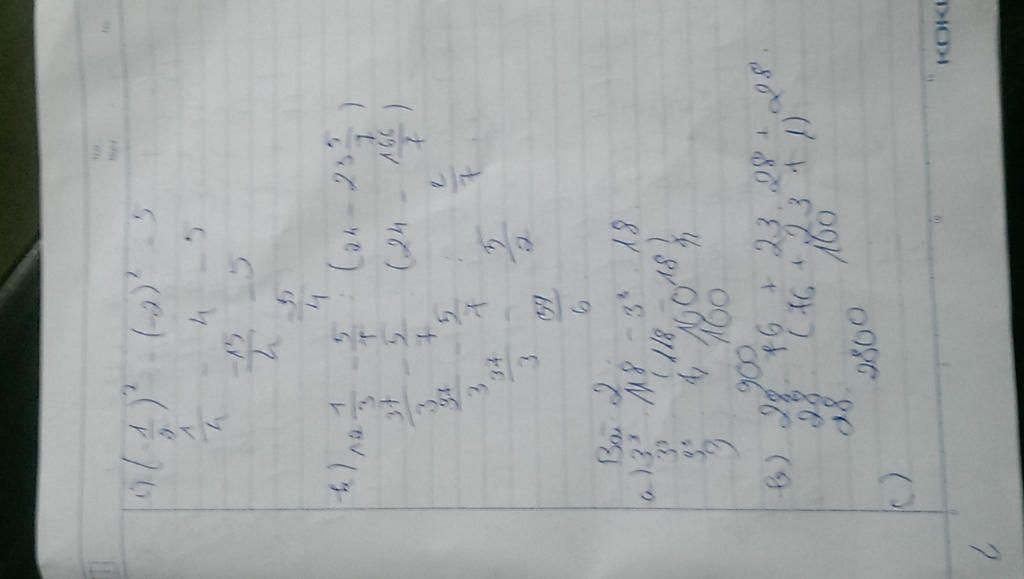 c) (-1/2)² - (-2)² - 5
1/4 - 4 - 5
-15/4 - 5
b) 12 1/3 - 5/7 : (24 - 23 5/7)
37/3 - 5/7 : (24 - 166/7)
37/3 - 5/7 : 2/7
37/3 - 5/2
59/6
Bài 2
a) 3² . 118 - 3² . 18
3² . (118 - 18)
3² . 100
9 . 100
900
b) 28 . 76 + 23 . 28 + 28.
28 . (76 + 23 + 1)
28 . 100
2800
c)